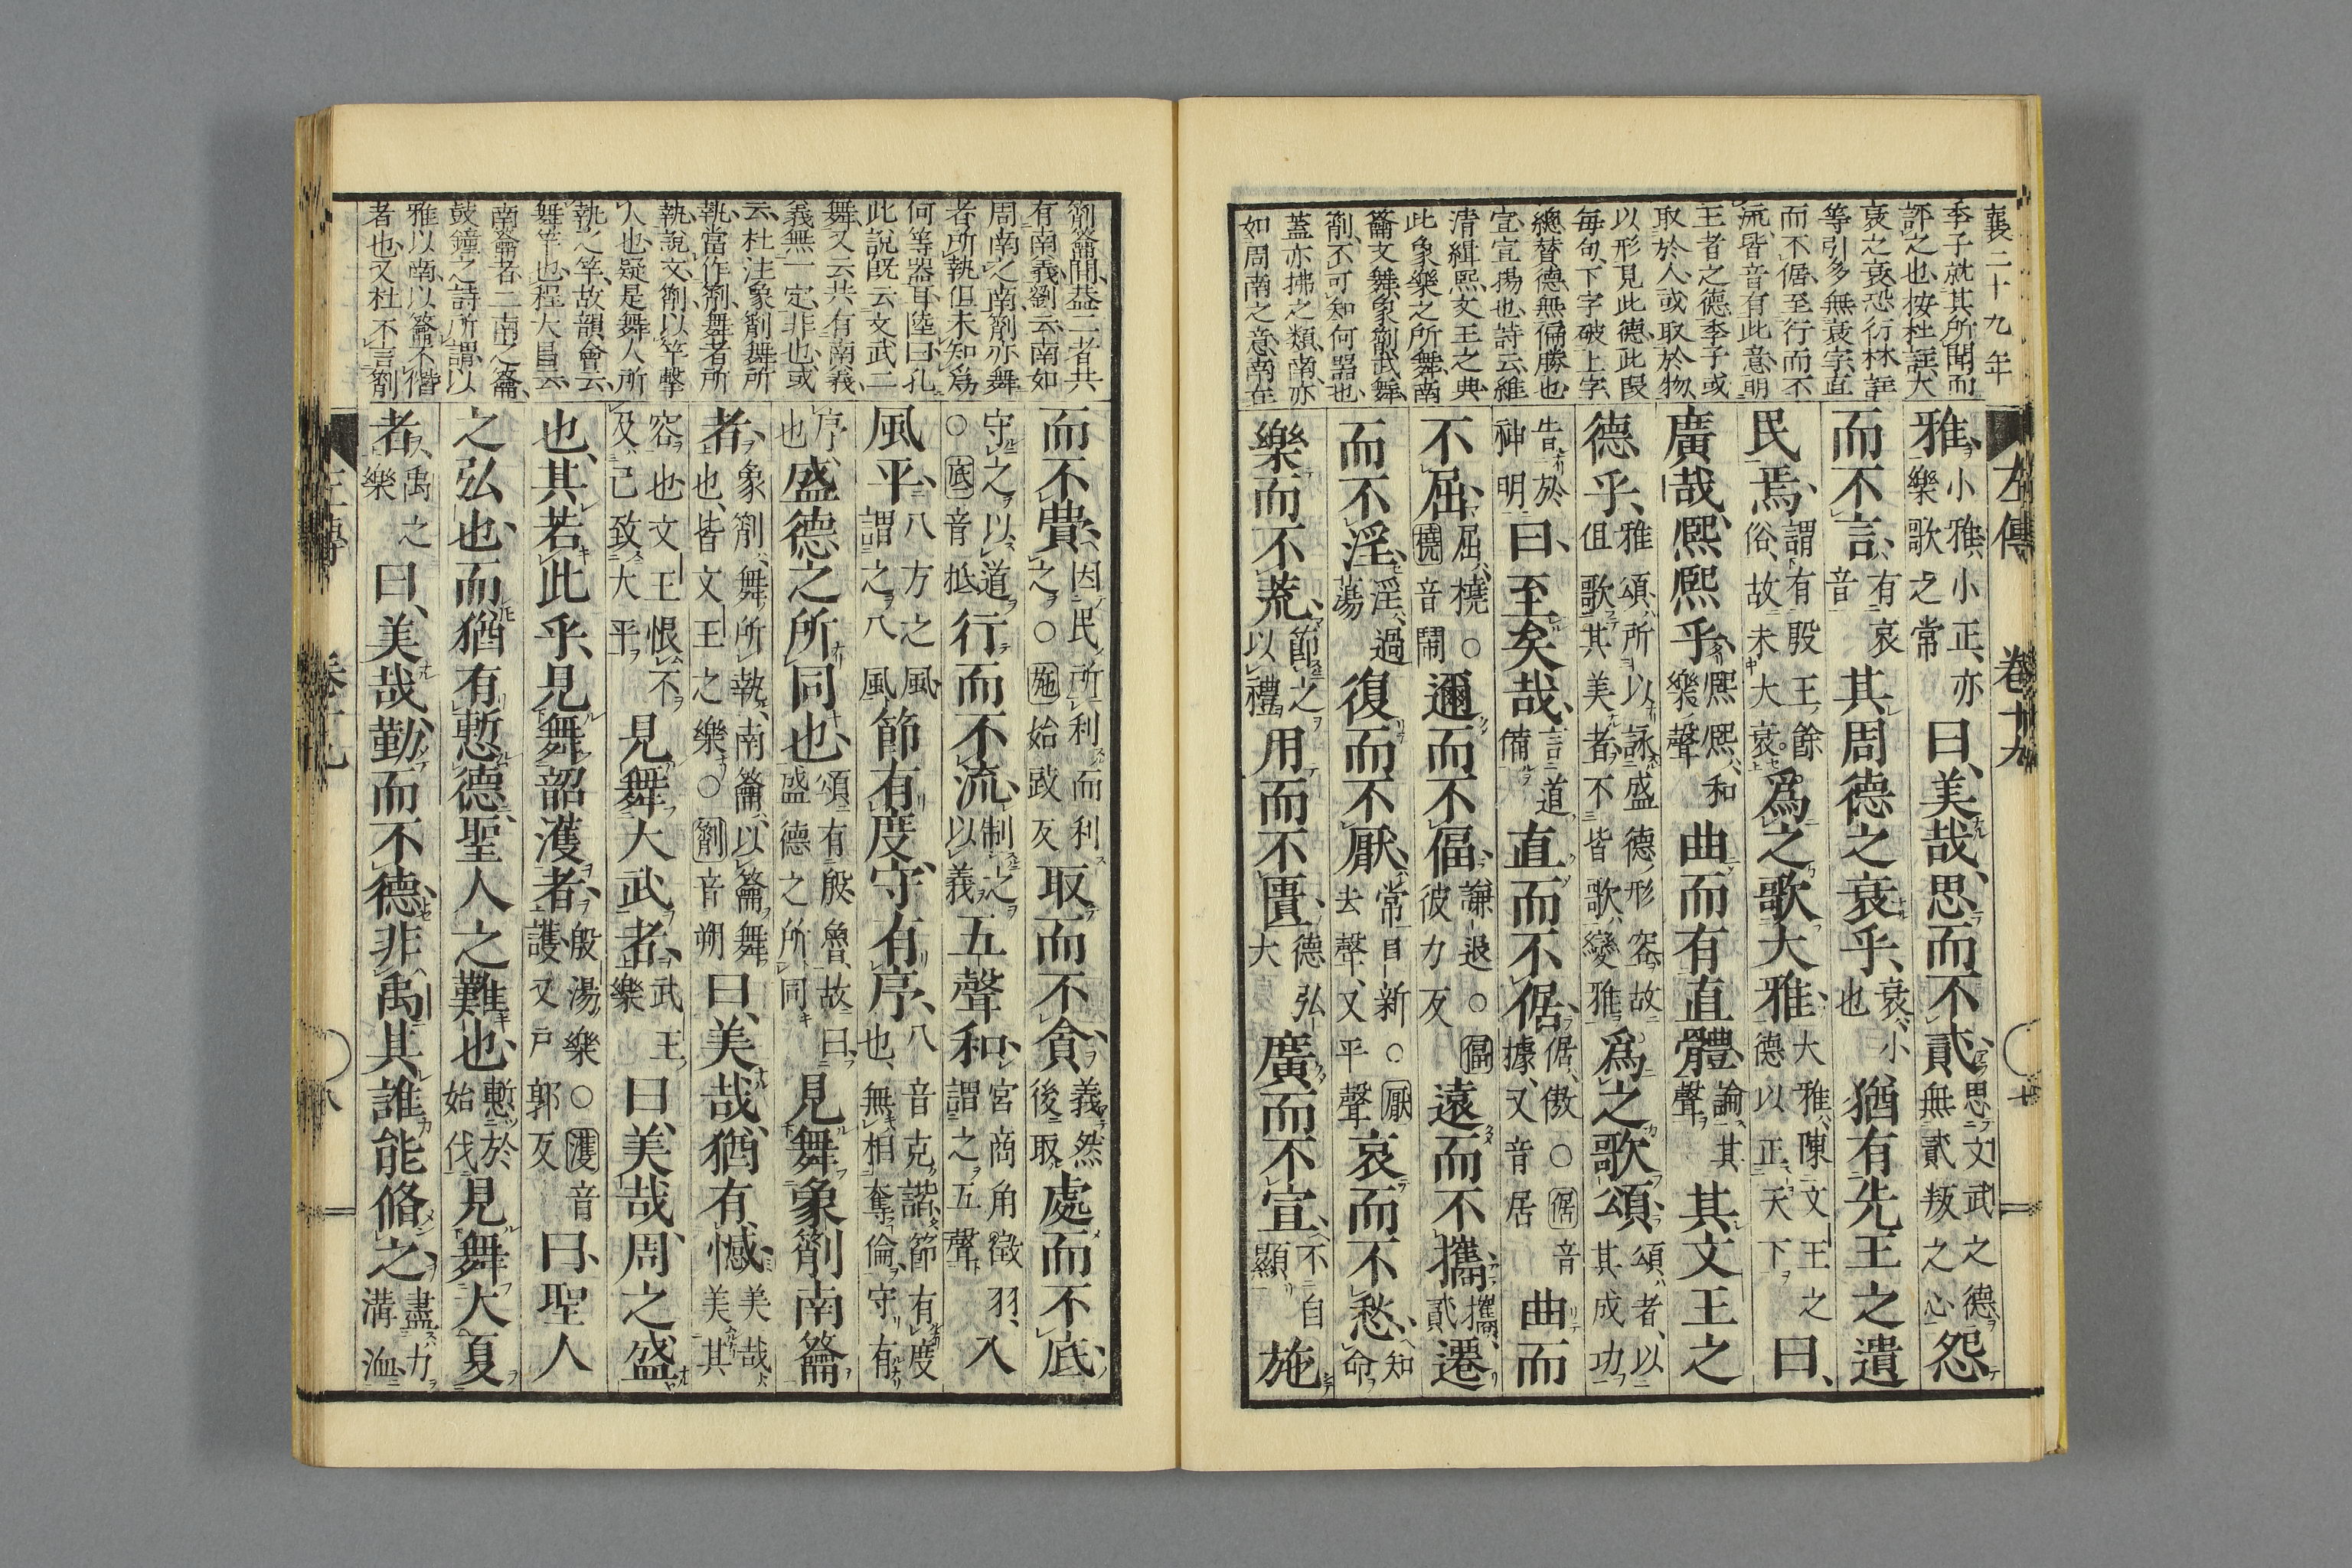 襄二十九年
季子就其所聞而
評之也按杜註大
衰之衰恐衍林註
等引多無衰字直
而不倨至行而不
流皆音有此意明
王者之德季子或
取於人或取於物
以形見此德此段
每句下字破上字
總替德無偏勝也
宣宣揚也詩云維
清緝熙文王之典
此象樂之所舞南
籥文舞象箾武舞
箾不可知何器也
蓋亦拂之類南亦
如周南之意南在
左傳 卷十九
雅、小雅、小正、亦樂歌之常曰、美哉、思而不貳、思文武之德無貳叛之心怨
而不言、有哀音其周德之衰乎、衰、小也猶有先王之遺
民焉、謂有殷王餘俗、故未大衰爲之歌大雅、大雅、陳文王之德以正天下曰、
廣哉、熙熙乎、熙熙、和樂聲曲而有直體、論其聲其文王之
德乎、雅頌、所以詠盛德形容故但歌其美者不皆歌變雅爲之歌頌、頌者、以其成功
告於神明曰、至矣哉、言道備直而不倨、倨、傲○倨音據又音居曲而
不屈、屈、橈○橈音鬧邇而不偪、謙退○偪彼力反遠而不攜、攜、貳遷
而不淫、淫、過蕩復而不厭、常日新○厭去聲、又平聲哀而不愁、知命
樂而不荒、節之以禮用而不匱、德弘大廣而不宣、不自顯施
箾籥間蓋二者共
有南義劉云南如
周南之南箾亦舞
者所執但未知爲
何等器耳陸曰孔
此說既云文武二
舞又云共有南義
義無一定非也或
云杜注象箾舞所
執當作箾舞者所
執說文箾以竿擊
人也疑是舞人所
執之竿故韻會云
舞竿也程大昌云
南籥者二南之籥
鼓鐘之詩所謂以
雅以南以籥不僭
者也又杜不言箾
而不費、因民所利而利之○施始豉反取而不貪、義然後取處而不底、
守之以道○底音抵行而不流、制之以義五聲和、宮商角徵羽、謂之五聲八
風平、八方之風謂之八風節有度、守有序、八音克諧、節有度也、無相奪倫、守有
序也盛德之所同也、頌有殷魯、故曰盛德之所同見舞象箾南籥
者、象箾、舞所執、南籥、以籥舞也、皆文王之樂○箾音朔曰、美哉、猶有憾、美哉、美其
容也文王恨不及己致大平見舞大武者、武王樂曰、美哉、周之盛
也、其若此乎、見舞韶濩者、殷湯樂○濩音護又戶郭反曰、聖人
之弘也、而猶有慙德、聖人之難也、慙於始伐見舞大夏
者、禹之樂曰、美哉、勤而不德、非禹其誰能脩之、盡力溝洫